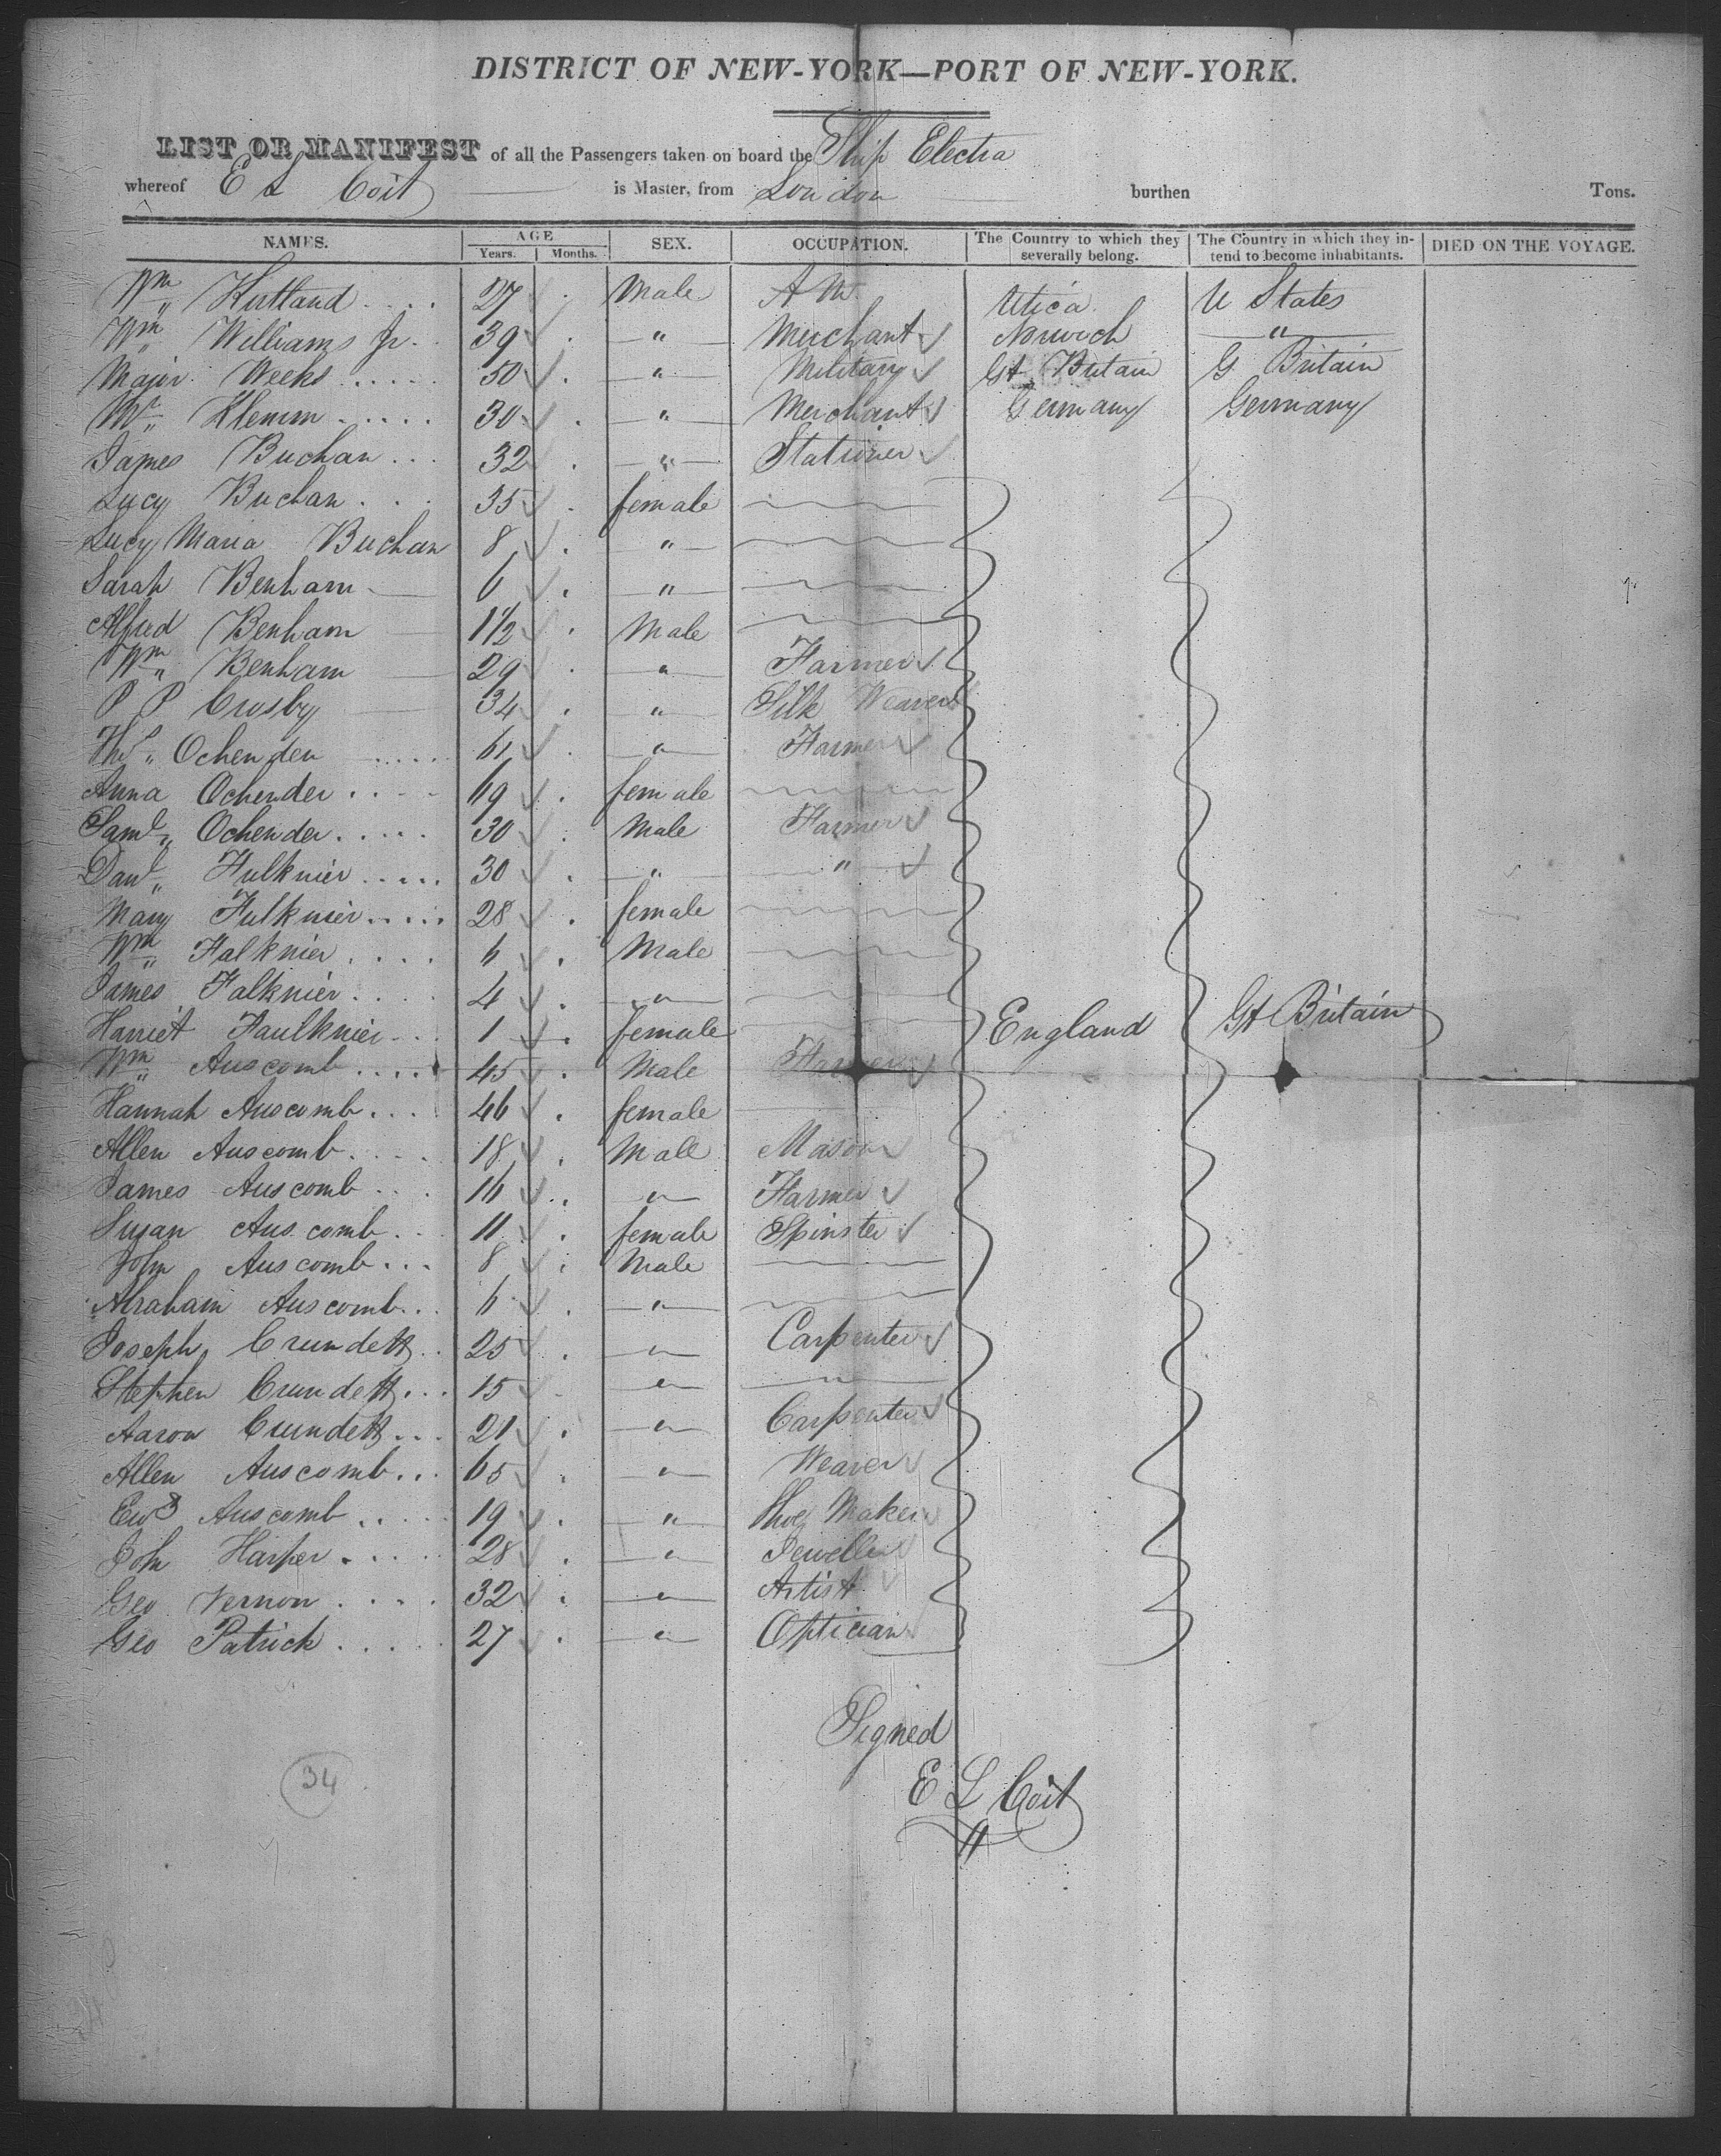 DISTRICT OF NEW-YORK—PORT OF NEW-YORK.
LIST OR MANIFEST of all the Passengers taken on board the Ship Electra
whereof E L Coit is Master, from London burthen Tons.
NAMES. AGE Years. Months. SEX. OCCUPATION. The Country to which they severally belong. The Country in which they intend to become inhabitants. DIED ON THE VOYAGE.
Wm 27 Male Utica U States
Wm Williams Jr 39 " Merchant Norwich "
Major Weeks 50 " Military Gt Britain G Britain
Mr Klemm 30 " Merchant Germany Germany
James Buchan 32 " Stationer
Lucy Buchan 35 female
Lucy Maria Buchan 8 "
Sarah Benham 6 "
Alfred Benham 1½ Male
Wm Benham 29 " Farmer
P P Crosby 34 " Silk Weaver
Thos Ochenden 61 " Farmer
Anna Ochender 69 female
Saml Ochender 30 Male Farmer
Danl Fulknier 30 " "
Mary Fulknier 28 female
Wm Falknier 6 Male
James Falknier 4 "
Harriet Faulknier 1 female England Gt Britain
Wm Auscomb 45 Male Farmer
Hannah Auscomb 46 female
Allen Auscomb 18 Male Mason
James Auscomb 16 " Farmer
Susan Auscomb 11 female Spinster
John Auscomb 8 Male
Abraham Auscomb 6 "
Joseph Crundett 25 " Carpenter
Stephen Crundett 15 "
Aaron Crundett 21 " Carpenter
Allen Auscomb 65 " Weaver
Ewd Auscomb 19 " Shoe Maker
John Harper 28 " Jeweller
Geo Vernon 32 " Artist
Geo Patrick 27 " Optician
Signed
34
E L Coit